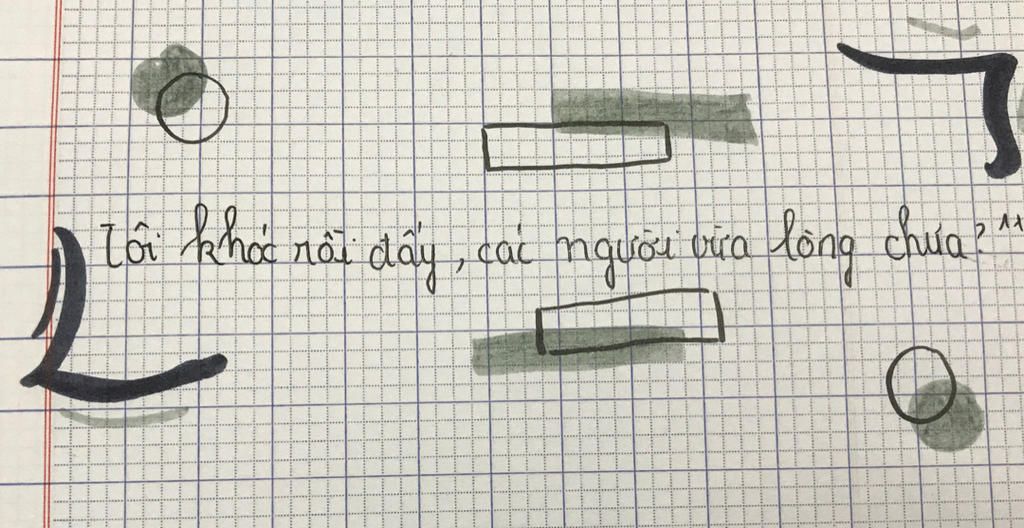 Tôi khóc rồi đấy, các người vừa lòng chưa?"